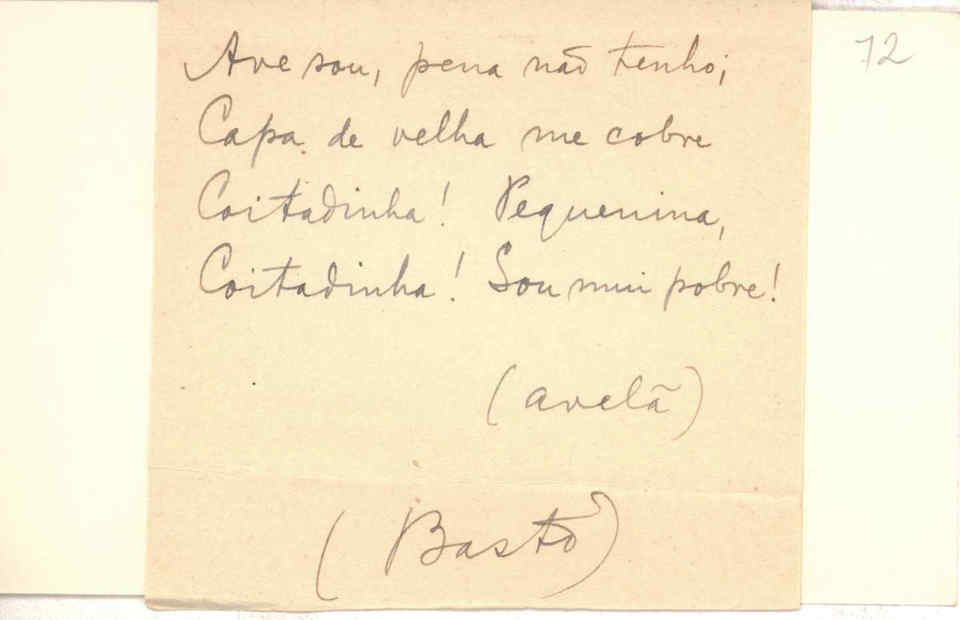 72
Ave sou, pena não tenho;
Capa de velha me cobre
Coitadinha! Pequenina,
Coitadinha! Sou mui pobre!
(avelã)
(Basto)